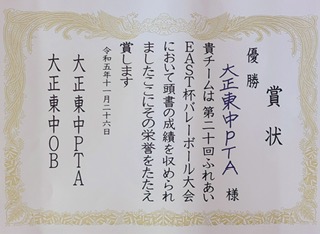 賞状
優勝
大正東中PTA 様
貴チームは第二十回ふれあい
EAST杯バレーボール大会
において頭書の成績を収められ
ましたここにその栄誉をたたえ
賞します
令和五年十一月二十六日
大正東中PTA
大正東中OB